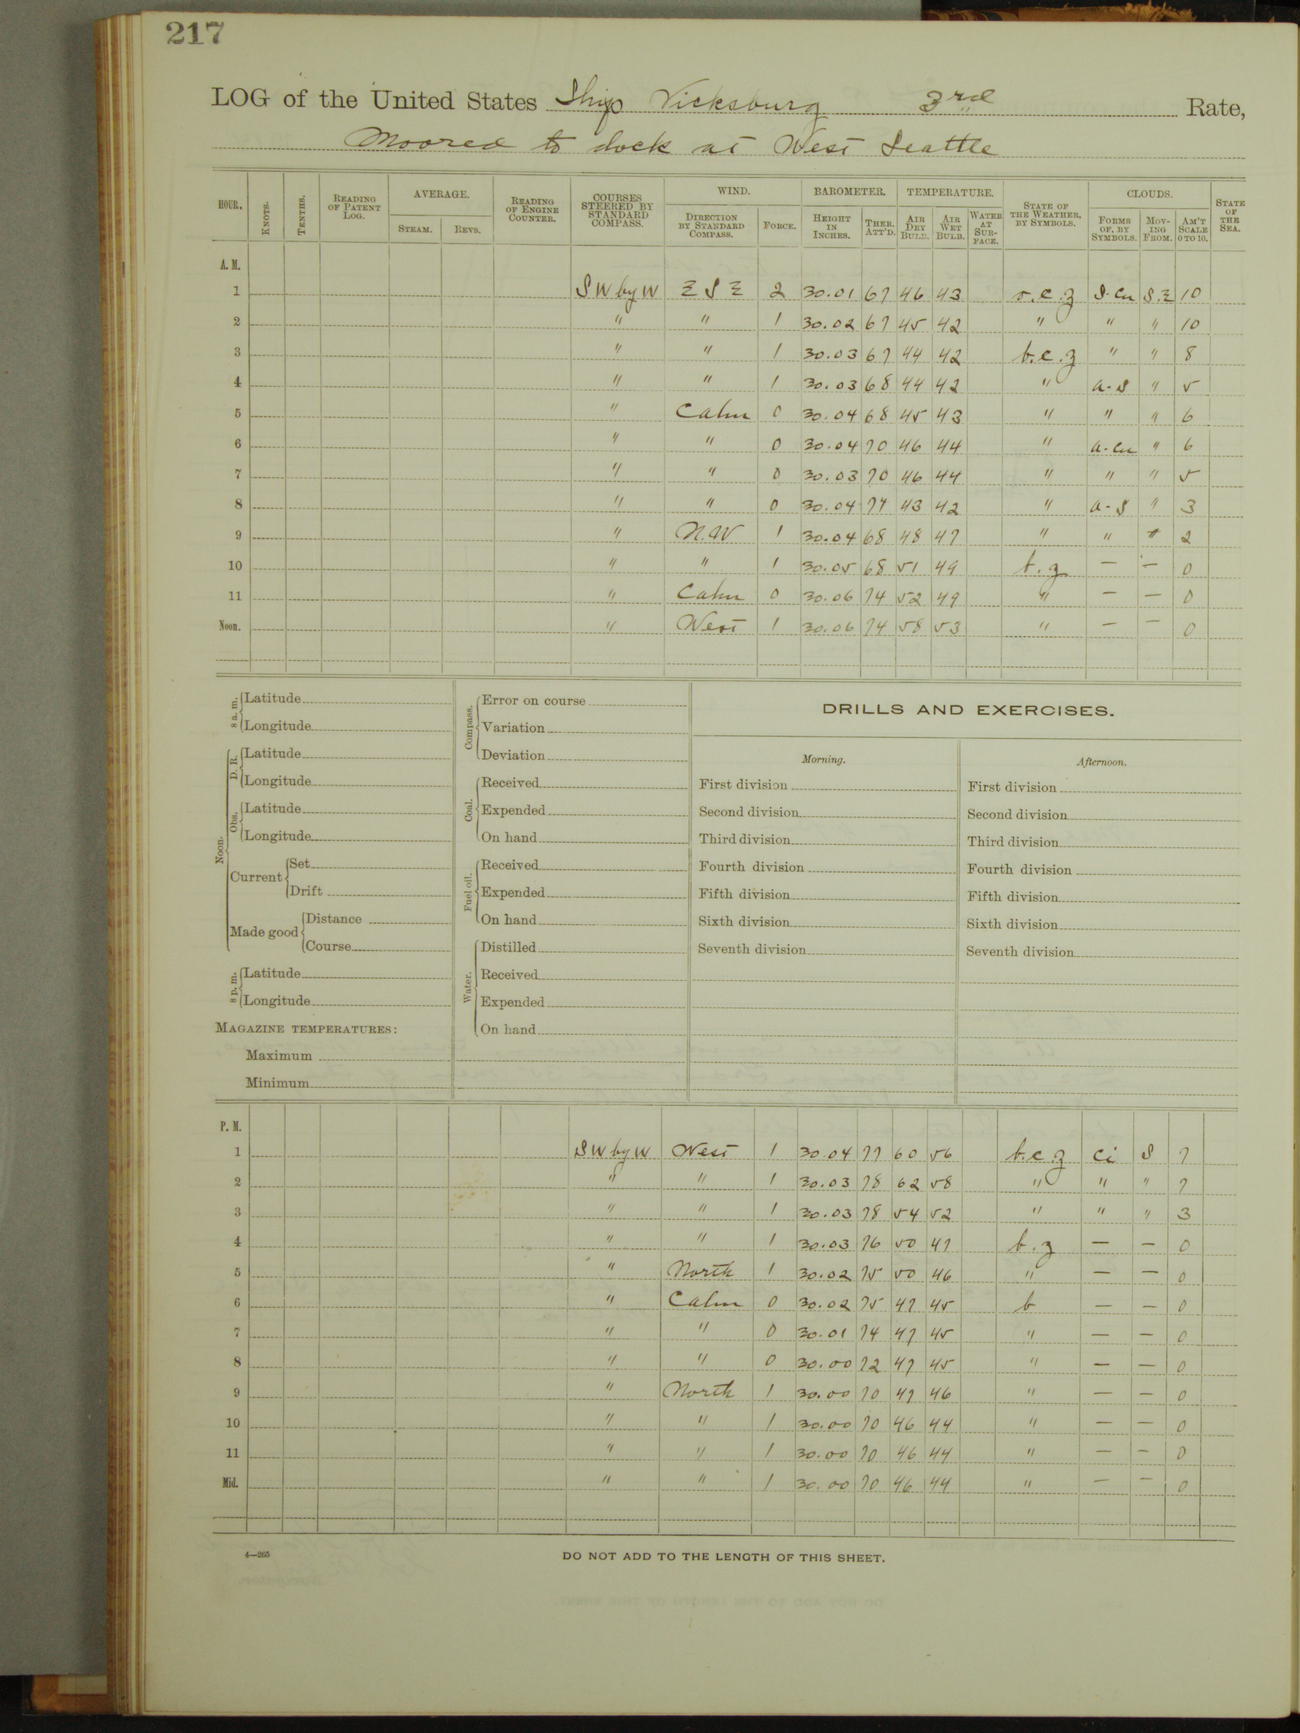 217
LOG of the United States Ship Vicksburg 3rd Rate,
Moored to dock at West Seattle
HOUR. KNOTS. TENTHS. READING OF PATENT LOG. AVERAGE. STEAM. REVS. READING OF ENGINE COUNTER. COURSES STEERED BY STANDARD COMPASS. WIND. DIRECTION BY STANDARD COMPASS. FORCE. BAROMETER. HEIGHT IN INCHES. THER. ATT'D. TEMPERATURE. AIR DRY BULB. AIR WET BULB. WATER AT SURFACE. STATE OF THE WEATHER, BY SYMBOLS. CLOUDS. FORMS OF, BY SYMBOLS. MOVING FROM. AM'T SCALE 0 TO 10. STATE OF THE SEA.
A. M.
1 SW by W ESE 2 30.01 67 46 43 o.c.z S-Cu S.E 10
2 " " 1 30.02 67 45 42 " " " 10
3 " " 1 30.03 67 44 42 b.c.z " " 8
4 " " 1 30.03 68 44 42 " a-s " 5
5 " Calm 0 30.04 68 45 43 " " " 6
6 " " 0 30.04 70 46 44 " a-cu " 6
7 " " 0 30.03 70 46 44 " " " 5
8 " " 0 30.04 77 43 42 " a-s " 3
9 " N.W 1 30.04 68 48 47 " " " 2
10 " " 1 30.05 68 51 49 b.z — — 0
11 " Calm 0 30.06 74 52 49 " — — 0
Noon. " West 1 30.06 74 58 53 " — — 0
8 a. m. Latitude
Longitude
Noon. D. R. Latitude
Longitude
Obs. Latitude
Longitude
Current Set
Drift
Made good Distance
Course
8 p. m. Latitude
Longitude
MAGAZINE TEMPERATURES:
Maximum
Minimum
Compass. Error on course
Variation
Deviation
Coal. Received
Expended
On hand
Fuel oil. Received
Expended
On hand
Water. Distilled
Received
Expended
On hand
DRILLS AND EXERCISES.
Morning.
First division
Second division
Third division
Fourth division
Fifth division
Sixth division
Seventh division
Afternoon.
First division
Second division
Third division
Fourth division
Fifth division
Sixth division
Seventh division
P. M.
1 SW by W West 1 30.04 77 60 56 b.c.z Ci S 7
2 " " 1 30.03 78 62 58 " " " 7
3 " " 1 30.03 78 54 52 " " " 3
4 " " 1 30.03 76 50 47 b.z — — 0
5 " North 1 30.02 75 50 46 " — — 0
6 " Calm 0 30.02 75 47 45 b — — 0
7 " " 0 30.01 74 47 45 " — — 0
8 " " 0 30.00 72 47 45 " — — 0
9 " North 1 30.00 70 47 46 " — — 0
10 " " 1 30.00 70 46 44 " — — 0
11 " " 1 30.00 70 46 44 " — — 0
Mid. " " 1 30.00 70 46 44 " — — 0
4—265
DO NOT ADD TO THE LENGTH OF THIS SHEET.